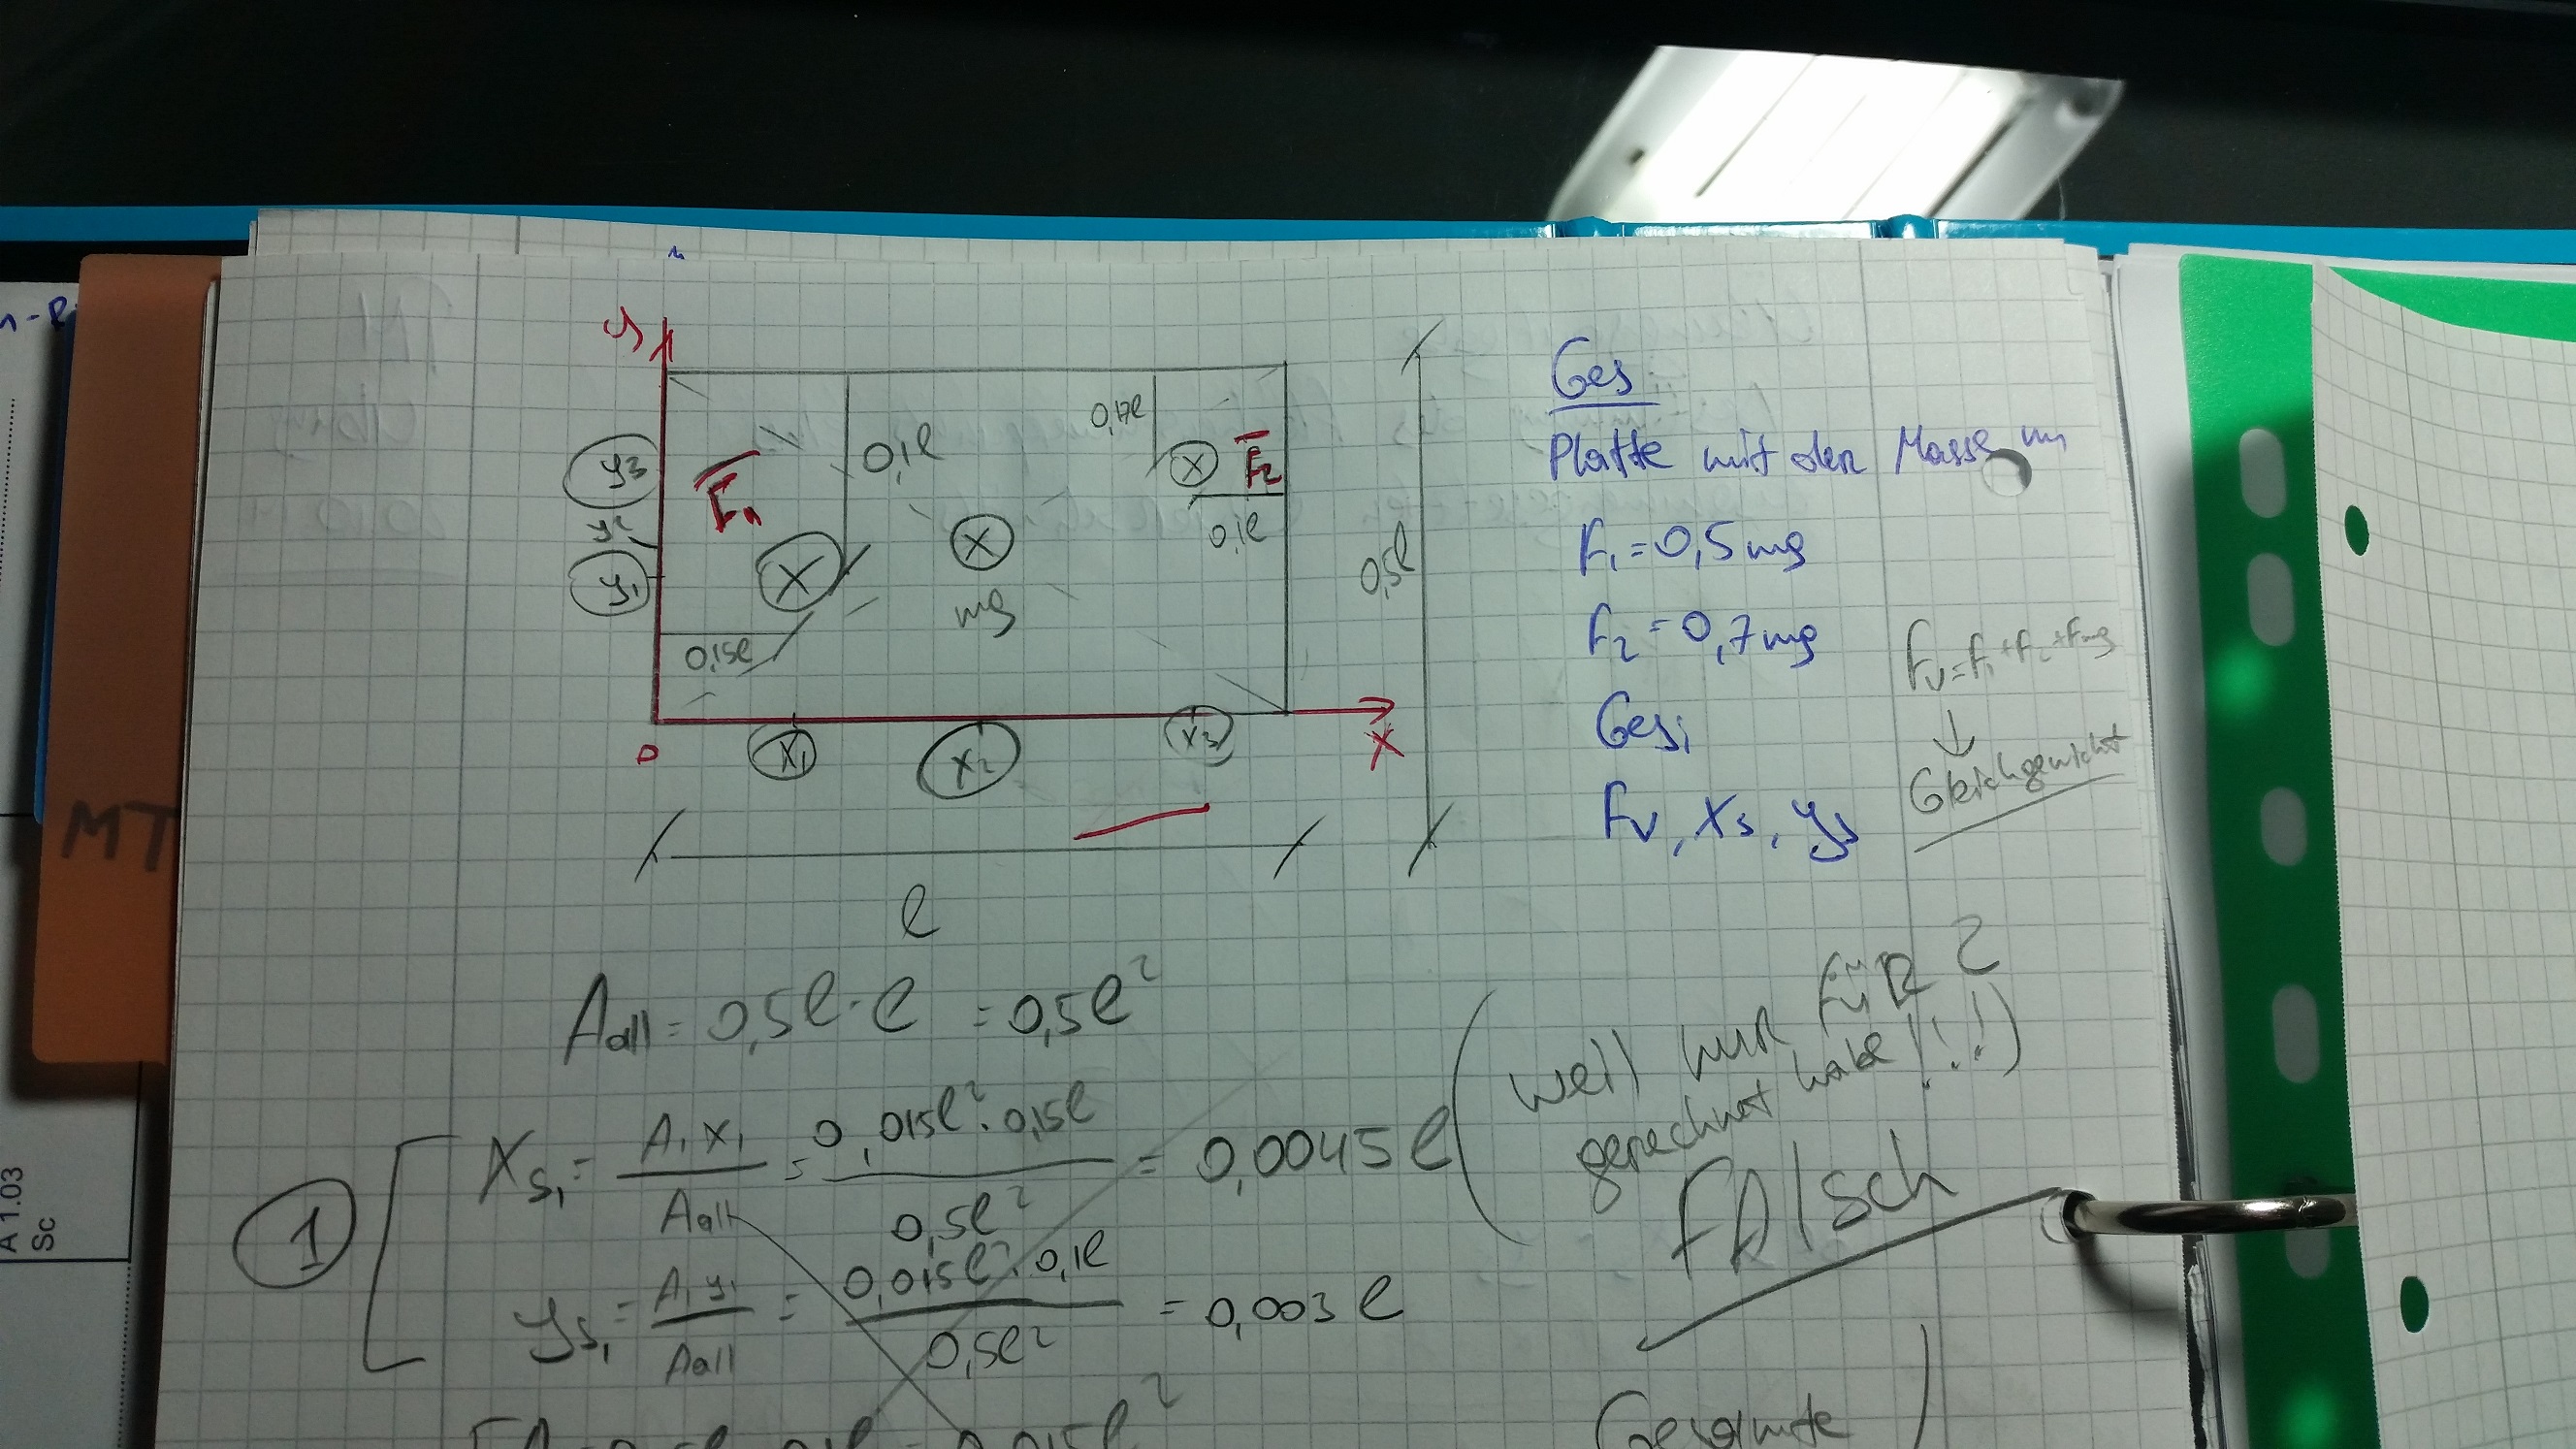 y
y3
y2
y1
F1
0,1l
0,17l
F2
0,1l
mg
0,15l
0,5l
0
x1
x2
x3
x
l
Ges
Platte mit der Masse m
F1 = 0,5 mg
F2 = 0,7 mg
Ges:
Fv, xs, ys
Fv = F1 + F2 + Fmg
↓
Gleichgewicht
Aall = 0,5l · l = 0,5l²
1
Xs1 = A1 X1 / Aall = 0,015l² · 0,15l / 0,5l² = 0,0045 l
(weil nur FüR 2
gerechnet habe!!!)
FAlsch
ys1 = A1 y1 / Aall = 0,015l² · 0,1l / 0,5l² = 0,003 l
0,015l²
Gesamte
MT
A 1.03
Sc